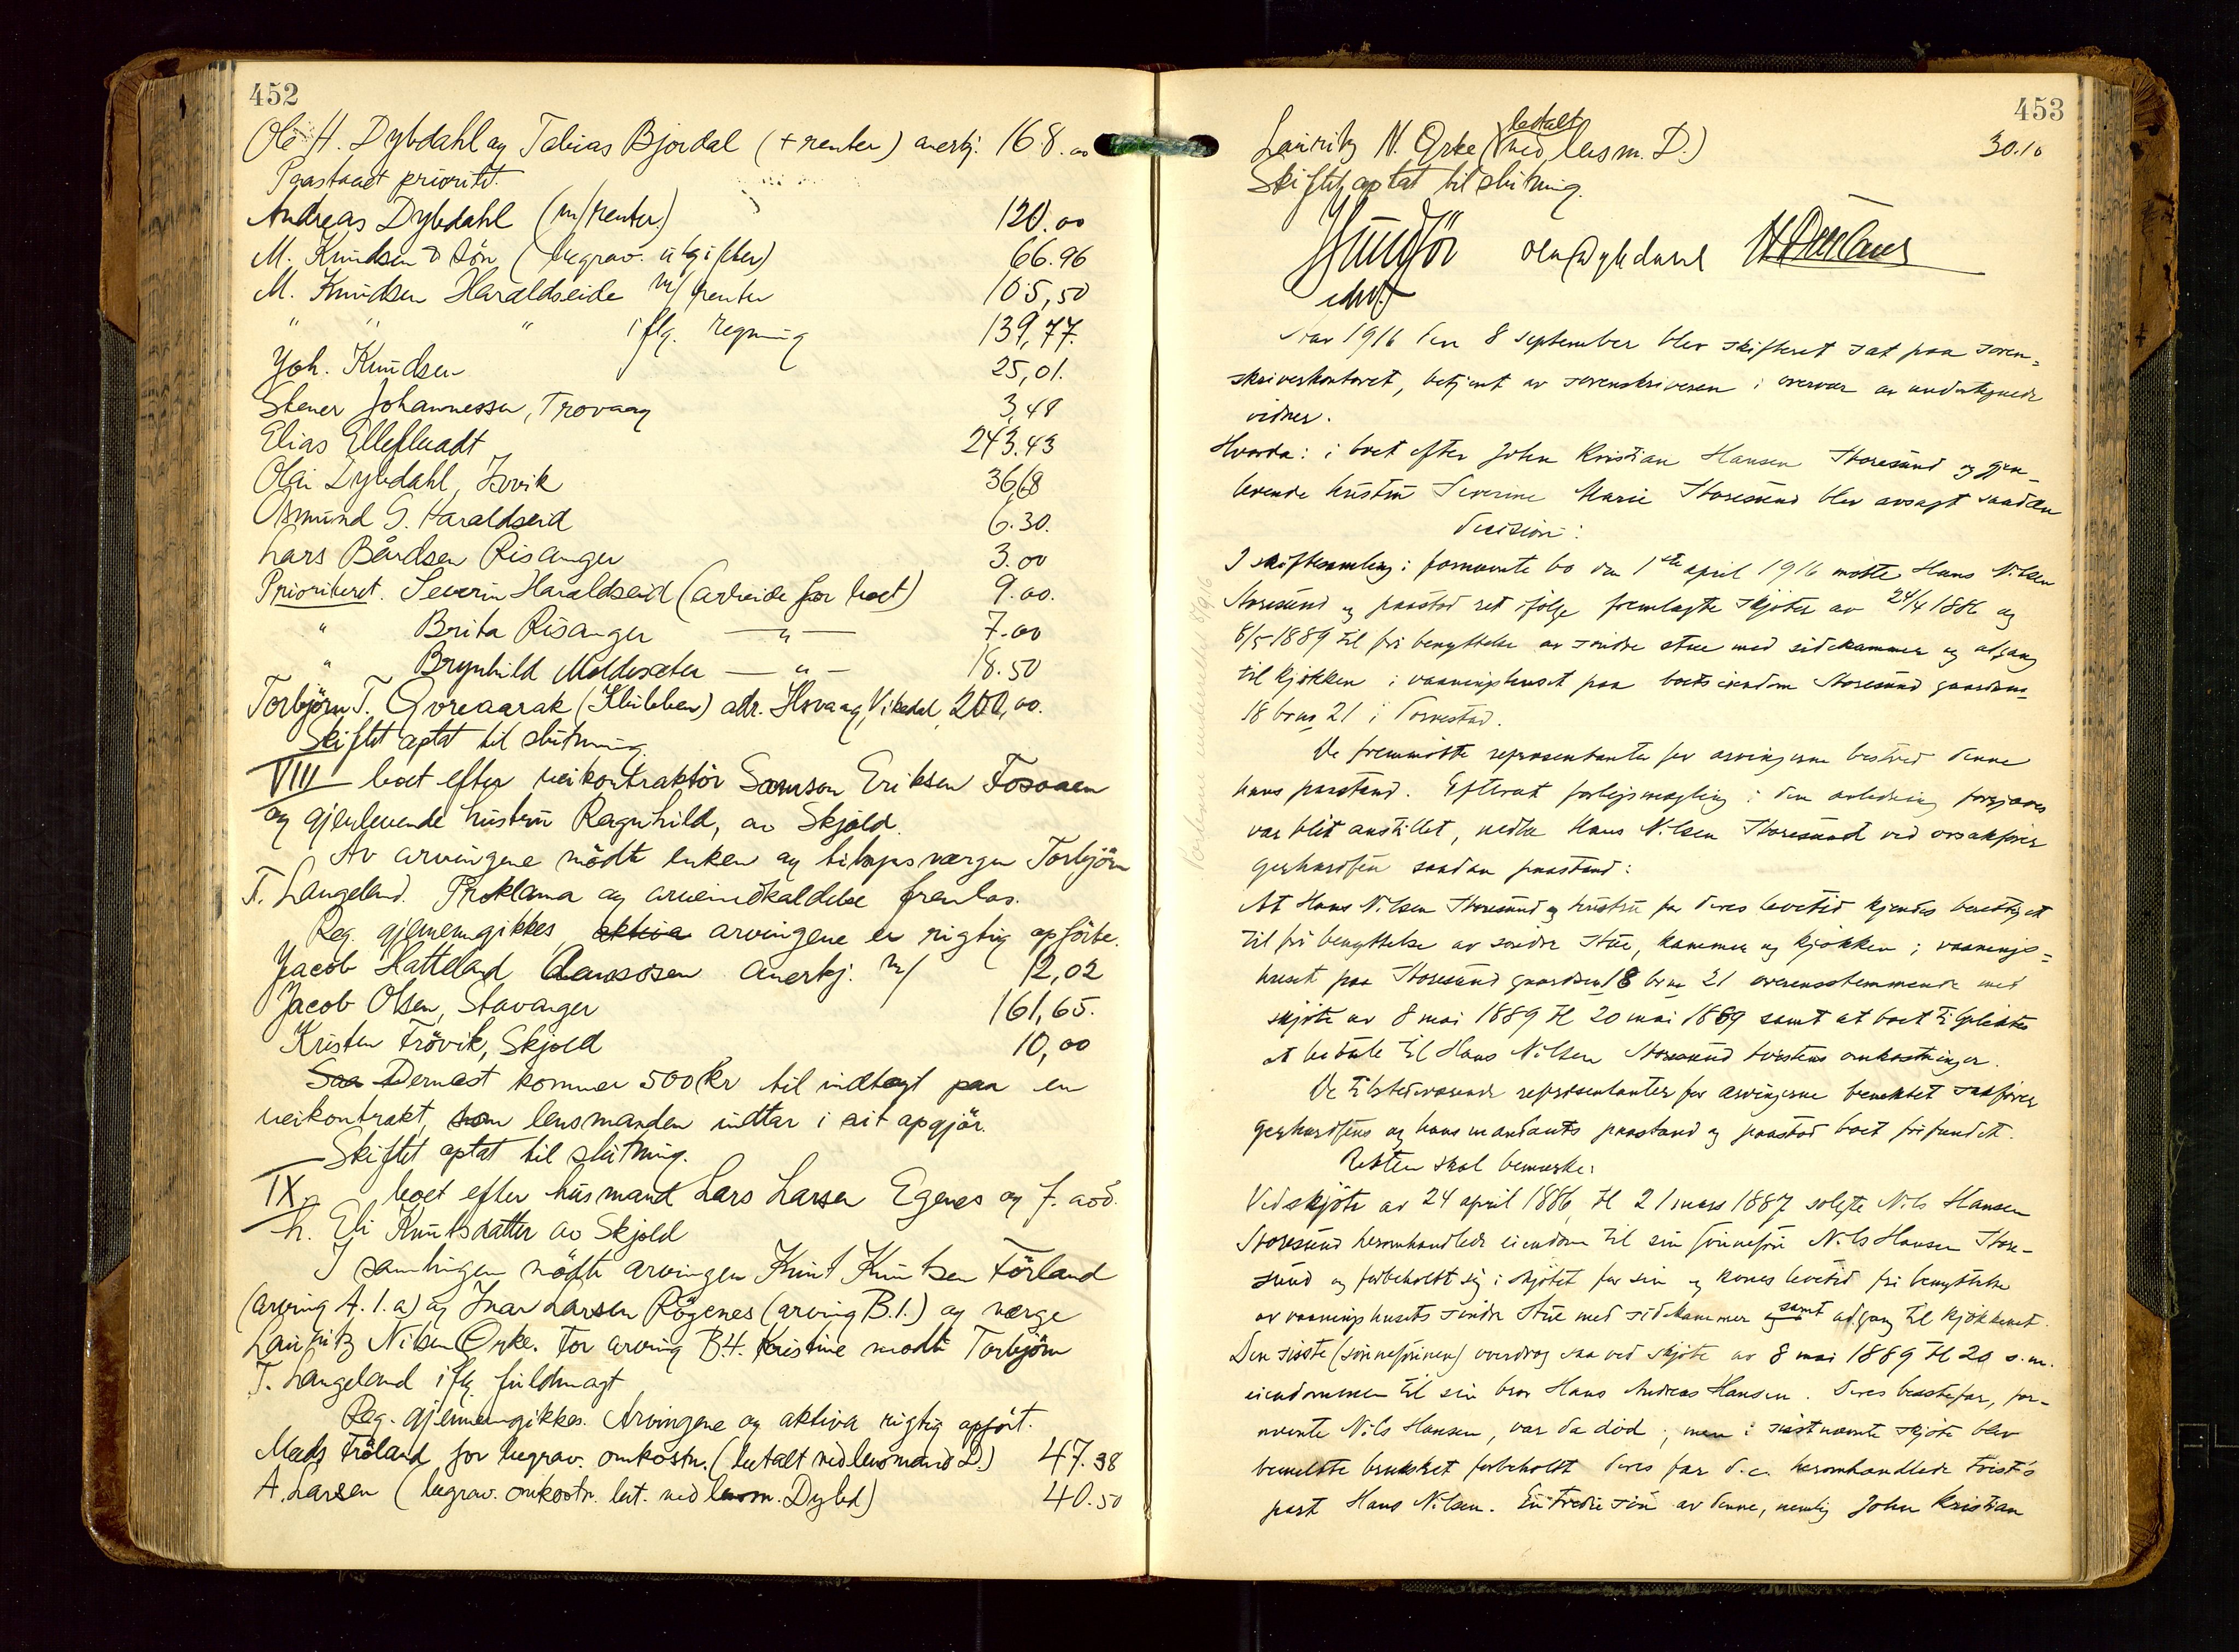 452
Ole H. Dybdahl og Tobias Bjordal (+ renter) anerkj. 168.00
Paastaaet prioritet.
Andreas Dybdahl (m/renter) 120.00
M. Knudsen & Sön (begrav. utgifter) 66.96
M. Knudsen Haraldseide m/ renter 105,50
" " " iflg. regning 139,77.
Joh. Knudsen 25,01.
Stener Johannessen, Trovaag 3,48
Elias 243.43
Olai Dybdahl, Isvik 36,68
Osmund S. Haraldseid 6.30.
Lars Bårdsen Risanger 3.00
Prioriteret. Severin Haraldseid (arbeide for boet) 9.00.
" Brita Risanger — " — 7.00
" Brynhild Moldeseter — " — 18.50
Torbjörn T. (Klubben) adr. Hovaag, Vikedal 200,00.
Skiftet optat til slutning.
VIII boet efter veikontraktör Samson Eriksen Fosaaen
og gjenlevende hustru Ragnhild, av Skjold.
Av arvingene mödte enken og tilsynsverge Torbjörn
T. Langeland. Proklama og arveindkaldelse fremlas.
Reg. gjennemgikkes aktiva arvingene er rigtig opförte.
Jacob Hatteland anerkj. m/ 12,02
Jacob Olsen, Stavanger 161,65.
Kristen Frövik, Skjold 10,00
Saa Dernæst kommer 500 kr til indtægt paa en
veikontrakt, som lensmanden indtar i sit opgjör.
Skiftet optat til slutning.
IX. boet efter husmand Lars Larsen Egenes og f. avd.
h. Eli Knutsdatter av Skjold
I samlingen mödte arvingen Knut Knutsen Förland
(arving A. 1. a) og Ivar Larsen Rögenes (arving B. 1.) og verge
Lauritz Nilsen Orke. For arving B.4. Kristine mödte Torbjörn
T. Langeland iflg. fuldmagt
Reg. gjennemgikkes. Arvingene og aktiva rigtig opfört.
Mads Fröland for begrav. omkostn. (betalt ved lensmand D.) 47.38
A. Larsen (begrav. omkostn. bet. ved lensm. Dybd) 40.50
453
Lauritz N. Orke (betalt ved lensm. D.) 30.10
Skiftet optat til slutning.
Aar 1916 den 8 september blev skifteret sat paa soren-
skriverkontoret, betjent av sorenskriveren i overvær av undertegnede
vidner.
Hvorda: i boet efter John Kristian Hansen Storesund og gjen-
levende hustru Severine Marie Storesund blev avsagt saadan
decision:
I skiftesamling i fornævnte bo den 1ste april 1916 mötte Hans Nilsen
Storesund og paastod ret ifölge fremlagte skjöter av 24/4 1886 og
8/5 1889 til fri benyttelse av söndre stue med sidekammer og adgang
til kjökken i vaaningshuset paa boets eiendom Storesund gaardsnr.
18 brnr 21 i Torvestad.
De fremmötte representanter for arvingerne bestred denne
hans paastand. Efterat forliksmegling i den anledning forgjæves
var blit anstillet, nedla Hans Nilsen Storesund ved ovsakförer
Gerhardsen saadan paastand:
At Hans Nilsen Storesund og hustru for deres levetid kjendes berettiget
til fri benyttelse av söndre stue, kammer og kjökken i vaanings-
huset paa Storesund gaardsnr 18 brnr 21 overensstemmende med
skjöte av 8 mai 1889 tl 20 mai 1889 samt at boet tilpliktes
at betale til Hans Nilsen Storesund tvistens omkostninger.
De tilstedeværende repræsentanter for arvingerne benektet sakförer
Gerhardsens og hans mandants paastand og paastod boet frifundet.
Retten skal bemerke:
Ved skjöte av 24 april 1886, tl 21 mars 1887 solgte Nils Hansen
Storesund heromhandlede eiendom til sin sönnesön Nils Hansen Store-
sund og forbeholdt sig i skjötet for sin og kones levetid fri benyttelse
av vaaningshusets söndre stue med sidekammer og samt adgang til kjökkenet.
Den sidste (sönnesönnen) overdrog saa ved skjöte av 8 mai 1889 tl 20 s.m.
eiendommen til sin bror Hans Andreas Hansen. Deres bestefar, for-
nævnte Nils Hansen, var da död, men i sidstnævnte skjöte blev
bemeldte bruksret forbeholdt deres far d.e. heromhandlede tvists
part Hans Nilsen. En tredie sön av denne, nemlig John Kristian